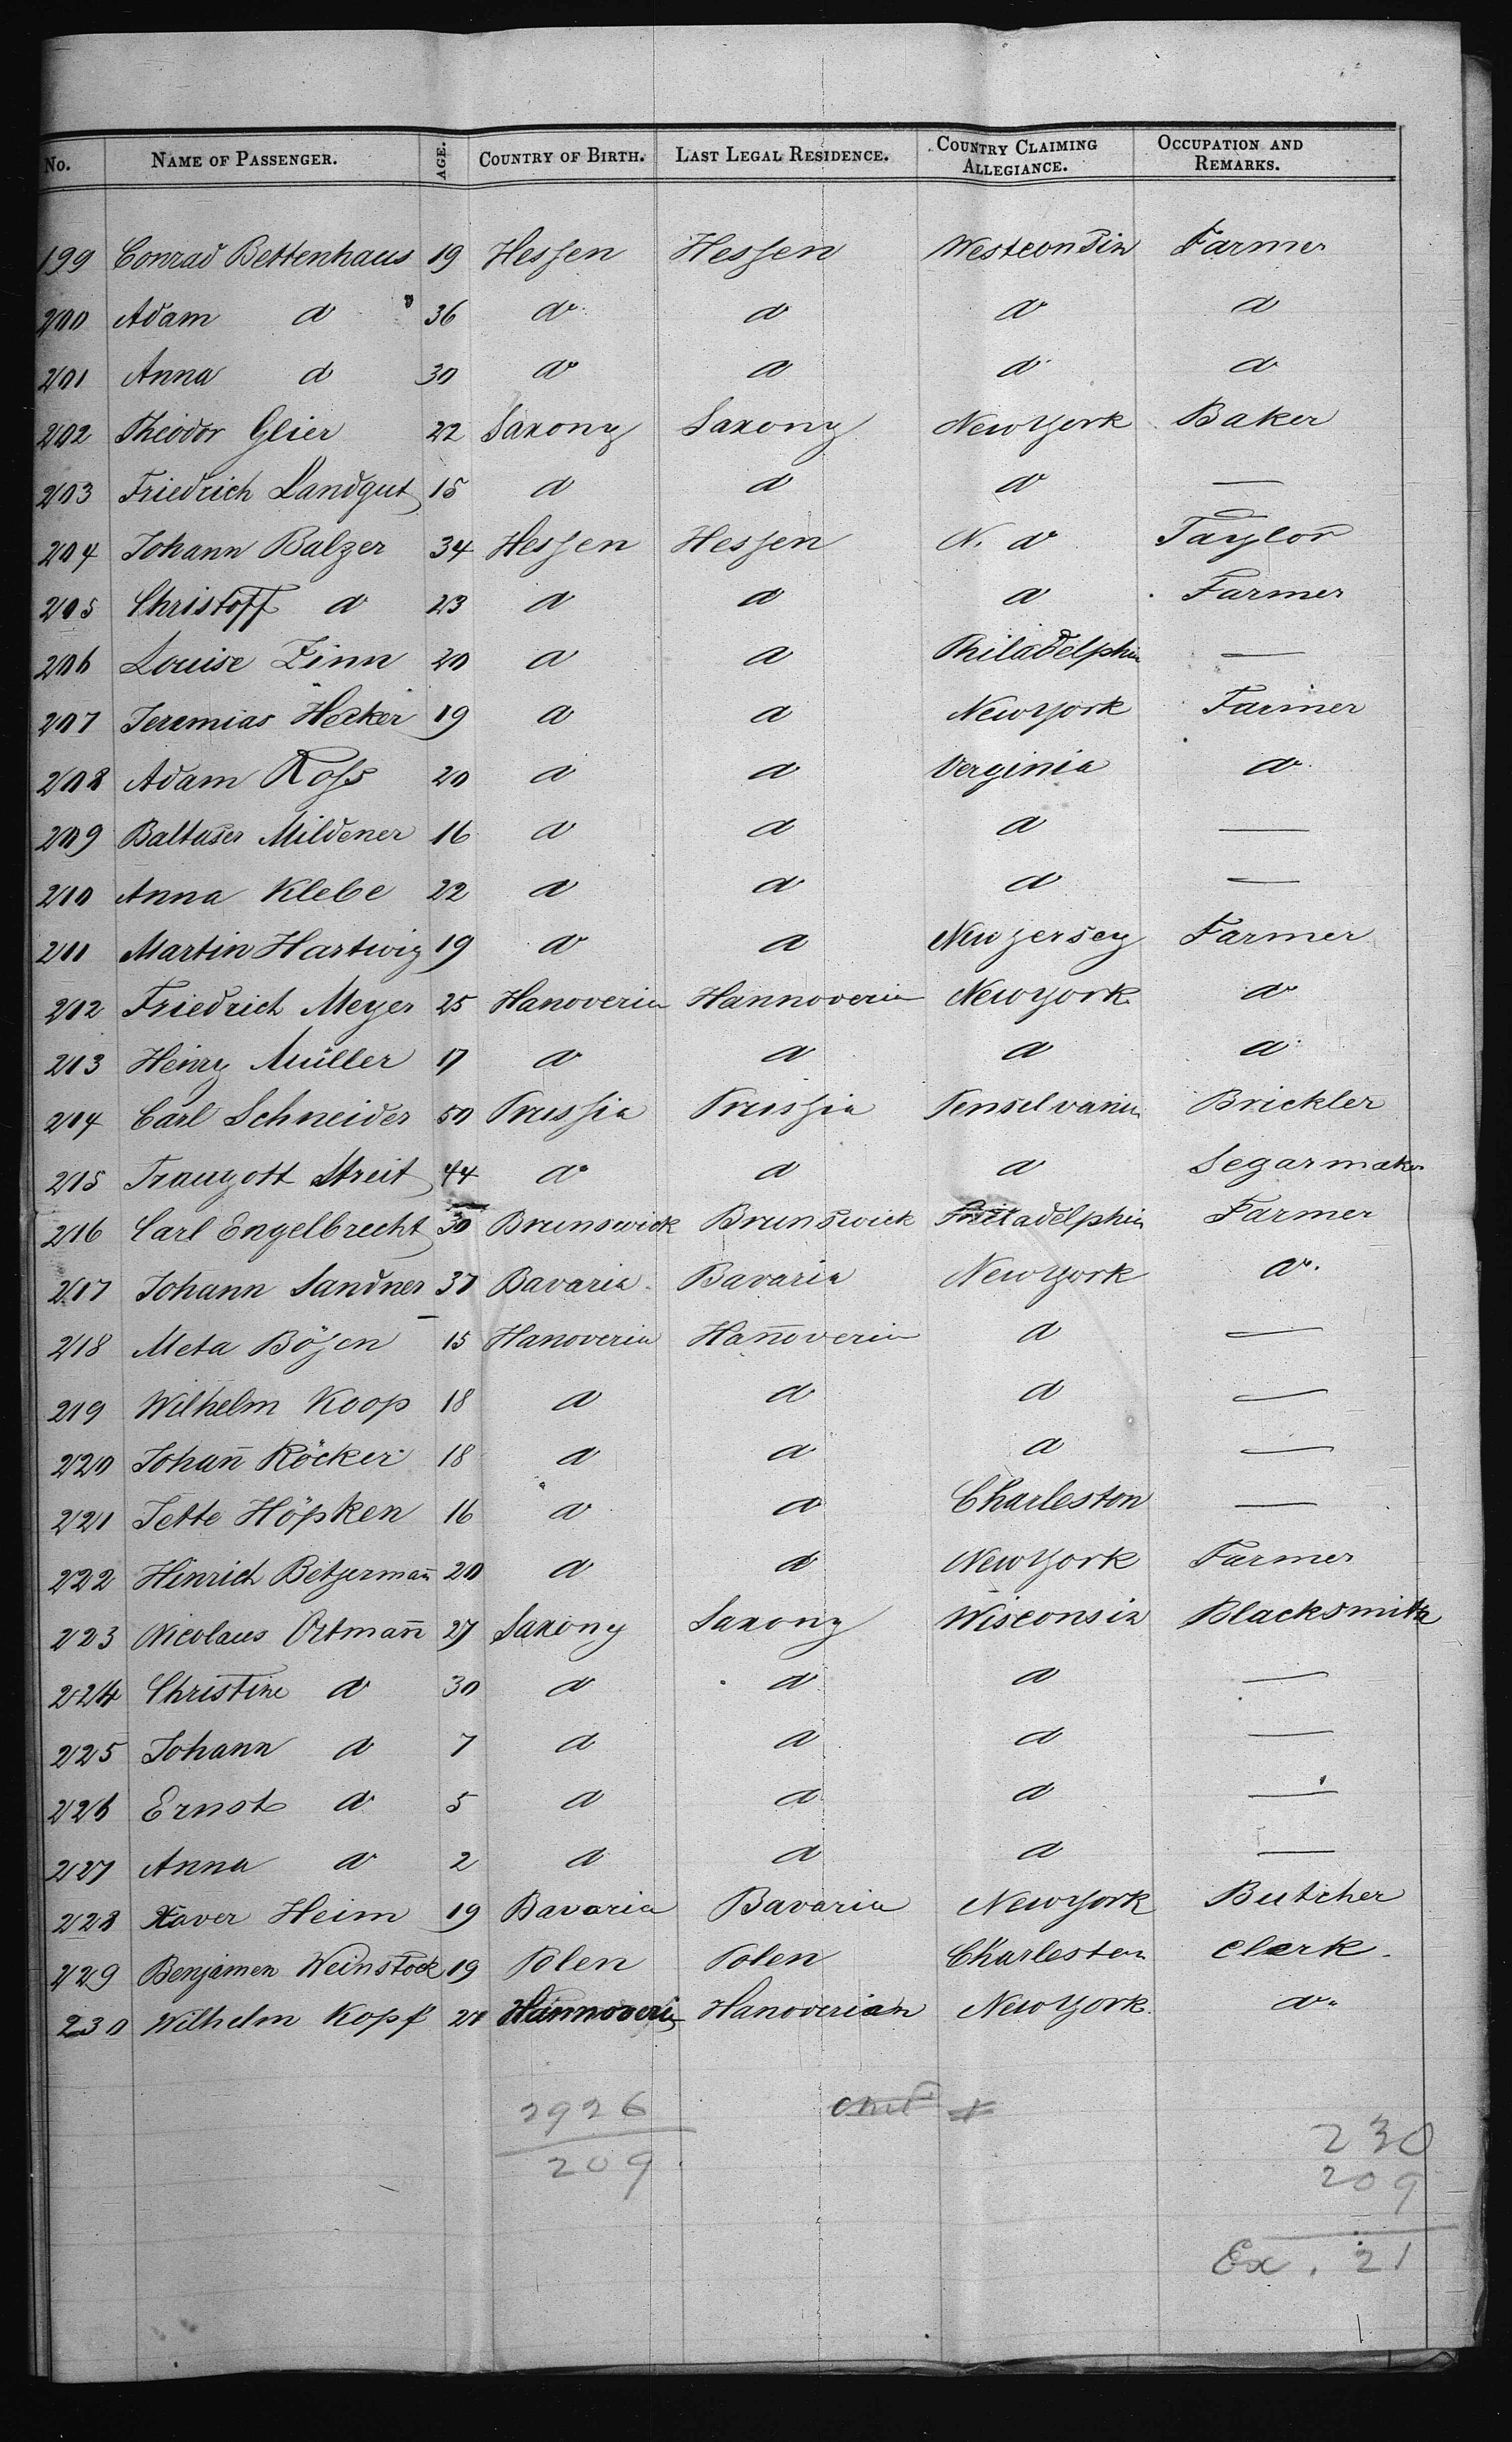 No. NAME OF PASSENGER. AGE. COUNTRY OF BIRTH. LAST LEGAL RESIDENCE. COUNTRY CLAIMING ALLEGIANCE. OCCUPATION AND REMARKS.
199 Conrad Bettenhaus 19 Hessen Hessen Westconsin Farmer
200 Adam do 36 do do do do
201 Anna do 30 do do do do
202 Theodor Glier 22 Saxony Saxony New York Baker
203 Friedrich Landgut 15 do do do —
204 Johann Balzer 34 Hessen Hessen N. do Taylor
205 Christoff do 23 do do do Farmer
206 Louise Zinn 20 do do Philadelphia —
207 Jeremias Hecker 19 do do New York Farmer
208 Adam Ross 20 do do Verginia do
209 Baltaser Mildener 16 do do do —
210 Anna Klebe 22 do do do —
211 Martin Hartwig 19 do do New jersey Farmer
212 Friedrich Meyer 25 Hanoveria Hannoveria New York do
213 Heinry Müller 17 do do do do
214 Carl Schneider 50 Prussia Prussia Penselvania Brickler
215 Traugott Streit 44 do do do Segarmaker
216 Carl Engelbrecht 30 Brunswick Brunswick Philadelphia Farmer
217 Johann Sandner 37 Bavaria Bavaria New York do
218 Meta Bösen 15 Hanoveria Han̄overia do —
219 Wilhelm Koop 18 do do do —
220 Johan̄ Röcker 18 do do do —
221 Jette Höpken 16 do do Charleston —
222 Hinrich Betzerman̄ 20 do do New York Farmer
223 Nicolaus Ortman̄ 27 Saxony Saxony Wisconsin Blacksmith
224 Christine do 30 do do do —
225 Johann do 7 do do do —
226 Ernst do 5 do do do —
227 Anna do 2 do do do —
228 Xaver Heim 19 Bavaria Bavaria New York Butcher
229 Benjamen Weinstock 19 Polen Polen Charleston Clerk
230 Wilhelm Kopf Hannoveria Hanoverian New York do
2926
209
230
209
Ex. 21